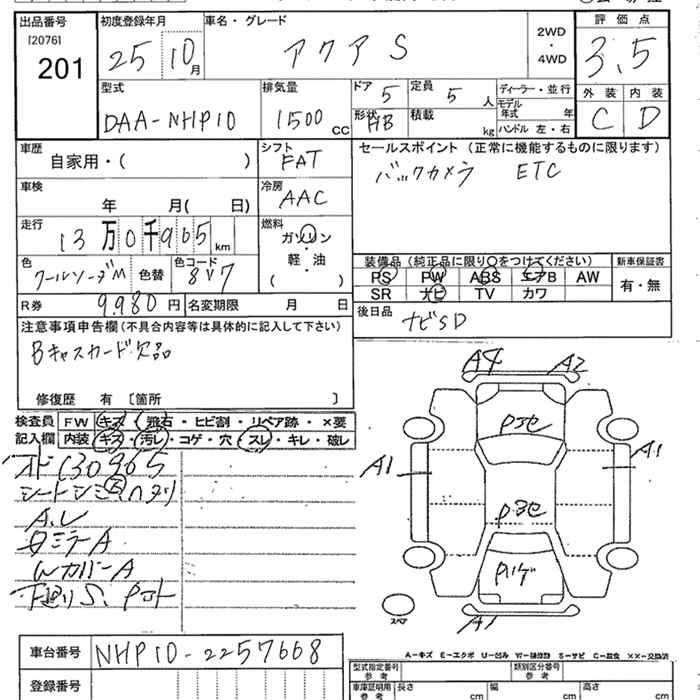 出品番号 初度登録年月 車名・グレード 2WD・4WD 評価点
[2076]
201 25 10月 アクア S 3.5
型式 排気量 ドア 定員 ディーラー・並行 外装 内装
DAA-NHP10 1500cc 5 5人 モデル年式 年 C D
形状 HB 積載 kg ハンドル 左・右
車歴 自家用・( ) シフト FAT セールスポイント(正常に機能するものに限ります)
バックカメラ ETC
車検 年 月( 日) 冷房 AAC
走行 13万0千965km 燃料 ガソリン・軽・油 ( )
色 クールソーダM 色替 色コード 8V7
装備品(純正品に限り○をつけてください) 新車保証書
PS PW ABS エアB AW 有・無
SR ナビ TV カワ
R券 9,980円 名変期限 月 日
後日品 ナビSD
注意事項申告欄(不具合内容等は具体的に記入して下さい)
Bキャスカード欠品
修復歴 有 〔箇所 〕
検査員 FW キズ・飛石・ヒビ割・リペア跡・×要
記入欄 内装 キズ・汚レ・コゲ・穴・スレ・キレ・破レ
130965
A.U
ミラーA
WカバーA
下廻りS.
A4 A2
A1 A1
A1
スペア
A-キズ E-エクボ U-凹み W-補修跡 S-サビ C-腐食 XX-交換済
車台番号 NHP10-2257668
登録番号
型式指定番号 参考 類別区分番号 参考
車庫証明用 参考 長さ cm 幅 cm 高さ cm